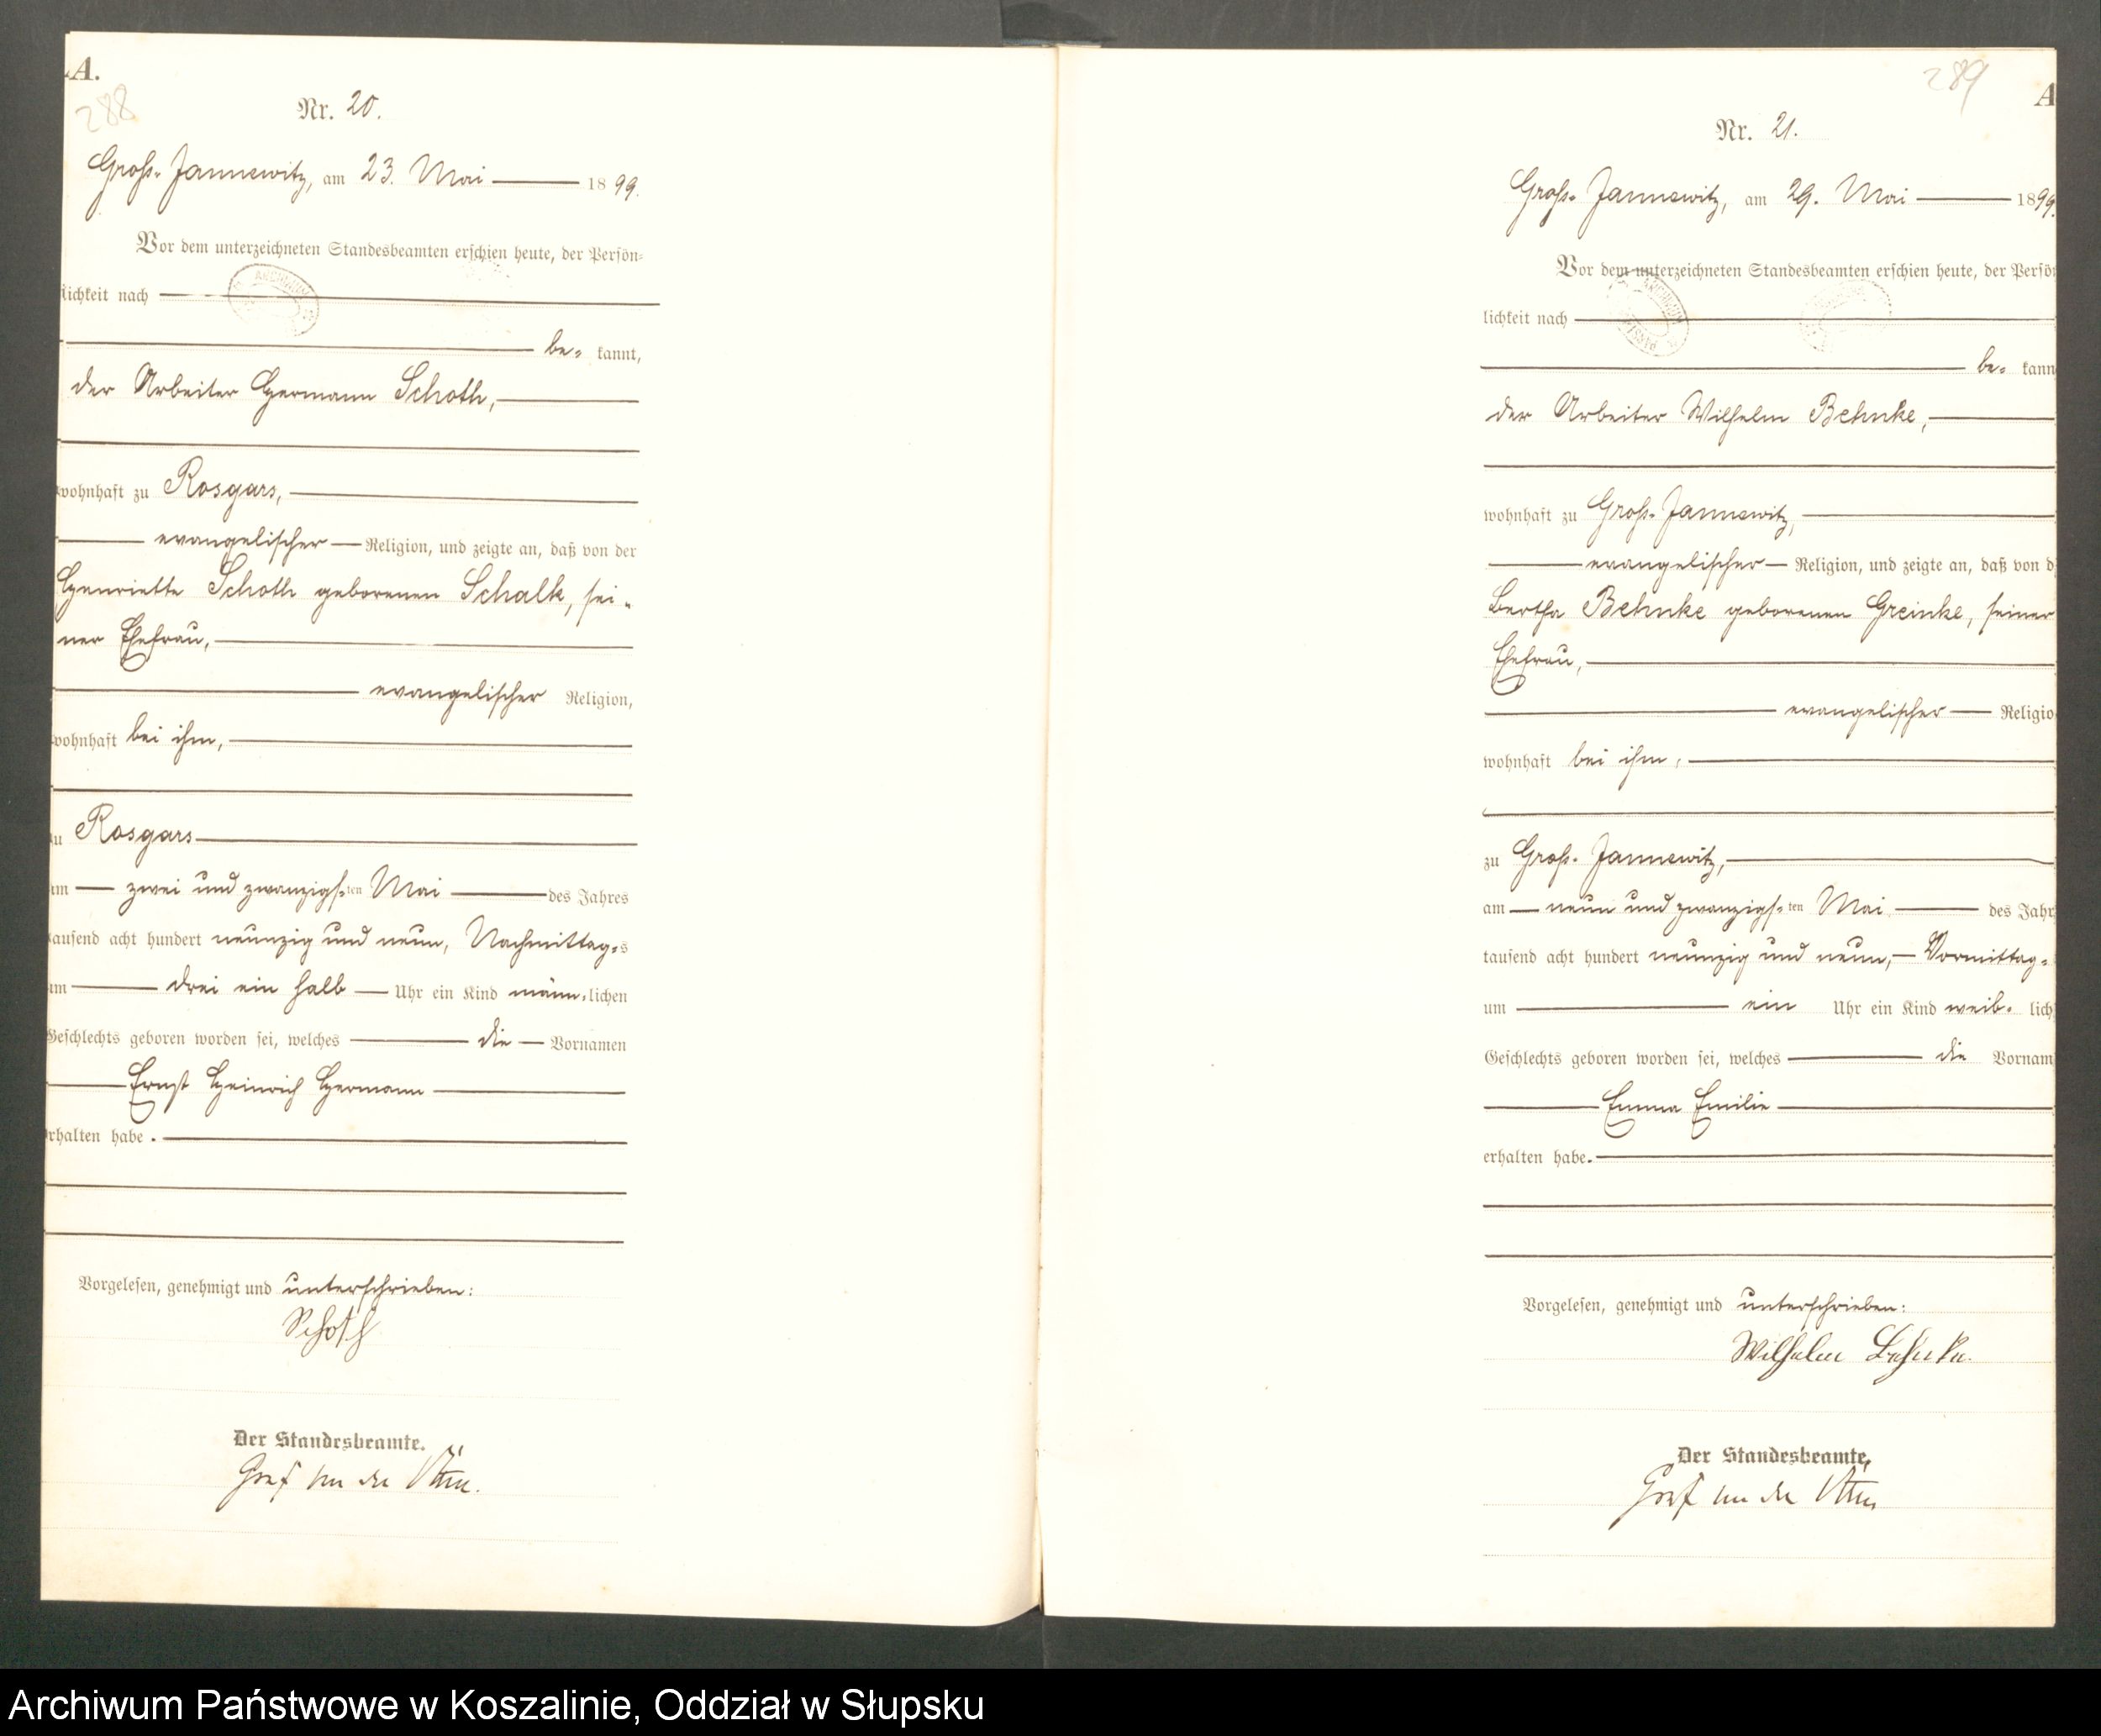 A.
288
Nr. 20.
Groß-Jannewitz, am 23. Mai 1899.
Vor dem unterzeichneten Standesbeamten erschien heute, der Persön-
lichkeit nach
be- kannt,
der Arbeiter Hermann Schoth,
wohnhaft zu Rosgars,
evangelischer Religion, und zeigte an, daß von der
Henriette Schoth geborenen Schalk, sei-
ner Ehefrau,
evangelischer Religion,
wohnhaft bei ihm,
zu Rosgars
am zwei und zwanzigs-ten Mai des Jahres
tausend acht hundert neunzig und neun, Nachmittag-s
um drei ein halb Uhr ein Kind männ-lichen
Geschlechts geboren worden sei, welches die Vornamen
Ernst Heinrich Hermann
erhalten habe.
Vorgelesen, genehmigt und unterschrieben:
Schoth
Der Standesbeamte.
Graf von der
289
A
Nr. 21.
Groß-Jannewitz, am 29. Mai 1899.
Vor dem unterzeichneten Standesbeamten erschien heute, der Persö
lichkeit nach
be- kann
der Arbeiter Wilhelm Behnke,
wohnhaft zu Groß-Jannewitz,
evangelischer Religion, und zeigte an, daß von d
Bertha Behnke geborenen Greinke, seiner
Ehefrau,
evangelischer Religio
wohnhaft bei ihm,
zu Groß-Jannewitz,
am neun und zwanzigs-ten Mai des Jahr
tausend acht hundert neunzig und neun, Vormittag-
um ein Uhr ein Kind weib- lich
Geschlechts geboren worden sei, welches die Vornam
Emma Emilie
erhalten habe.
Vorgelesen, genehmigt und unterschrieben:
Wilhelm Behnke.
Der Standesbeamte.
Graf von der
Archiwum Państwowe w Koszalinie, Oddział w Słupsku